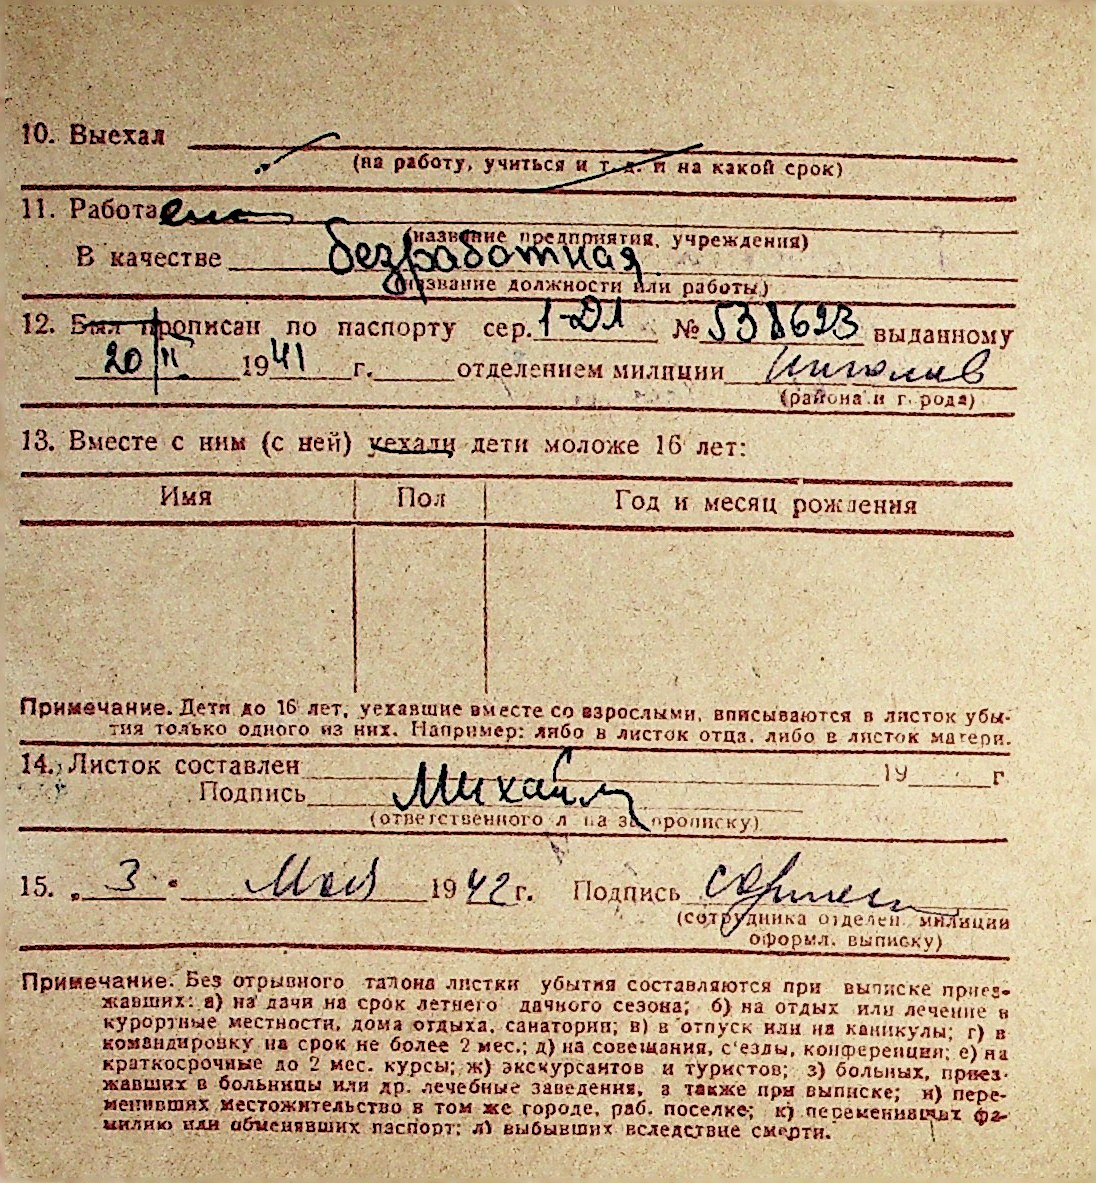 10. Выехал
(на работу, учиться и т. д. и на какой срок)
11. Работа
(название предприятия, учреждения)
В качестве безработная
(название должности или работы)
12. Был прописан по паспорту сер. 1-ДЛ № 538623 выданному
20/II 1941 г. отделением милиции
(района и города)
13. Вместе с ним (с ней) уехали дети моложе 16 лет:
Имя Пол Год и месяц рождения
Примечание. Дети до 16 лет, уехавшие вместе со взрослыми, вписываются в листок убы-
тия только одного из них. Например: либо в листок отца, либо в листок матери.
14. Листок составлен 19 г
Подпись Михайл
(ответственного лица за прописку)
15. „ 3 " Мая 1942 г. Подпись
(сотрудника отделен. милиции
оформл. выписку)
Примечание. Без отрывного талона листки убытия составляются при выписке приез-
жавших: а) на дачи на срок летнего дачного сезона; б) на отдых или лечение в
курортные местности, дома отдыха, санатории; в) в отпуск или на каникулы; г) в
командировку на срок не более 2 мес.; д) на совещания, с'езды, конференции; е) на
краткосрочные до 2 мес. курсы; ж) экскурсантов и туристов; з) больных, приез-
жавших в больницы или др. лечебные заведения, а также при выписке; и) пере-
менивших местожительство в том же городе, раб. поселке; к) переменивших фа-
милию или обменявших паспорт; л) выбывших вследствие смерти.